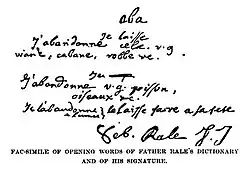 aba
J'abandonne je laisse
cela. v.g
want, cabane, robbe &c.
Jeu
J'abandonne v.g. poisson,
oiseaux &c.
Je l'abandonne, le laisse faire a sa teste
Seb. Rale S. J
FAC-SIMILE OF OPENING WORDS OF FATHER RALE'S DICTIONARY
AND OF HIS SIGNATURE.